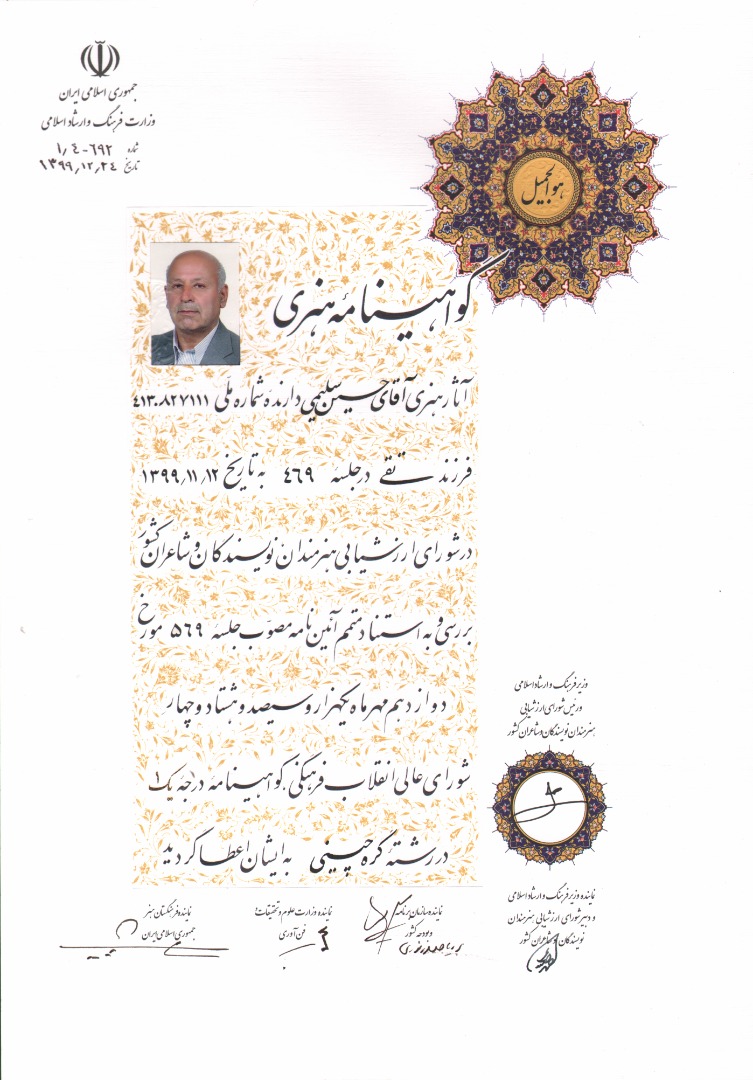 جمهوری اسلامی ایران
وزارت فرهنگ و ارشاد اسلامی
شماره ۱٫۴-۶۹۲
تاریخ ۱۳۹۹٫۱۲٫۲۴
هو الجمیل
گواهینامهٔ هنری
آثار هنری آقای حسین سلیمی دارنده شماره ملی ۴۱۳۰۸۲۷۱۱۱
فرزند تقی در جلسهٔ ۴۶۹ به تاریخ ۱۳۹۹٫۱۱٫۱۲
در شورای ارزشیابی هنرمندان نویسندگان و شاعران کشور
بررسی و به استناد متمم آئین نامه مصوب جلسهٔ ۵۶۹ مورخ
دوازدهم مهرماه یکهزار و سیصد و هشتاد و چهار
شورای عالی انقلاب فرهنگی، گواهینامهٔ درجه یک ۱
در رشتهٔ گره چینی به ایشان اعطا گردید
وزیر فرهنگ و ارشاد اسلامی
و رئیس شورای ارزشیابی
هنرمندان نویسندگان و شاعران کشور
نماینده وزیر فرهنگ و ارشاد اسلامی
و دبیر شورای ارزشیابی هنرمندان
نویسندگان و شاعران کشور
نماینده سازمان برنامه
و بودجه کشور
نماینده وزارت علوم و تحقیقات
فن آوری
نماینده فرهنگستان هنر
جمهوری اسلامی ایران